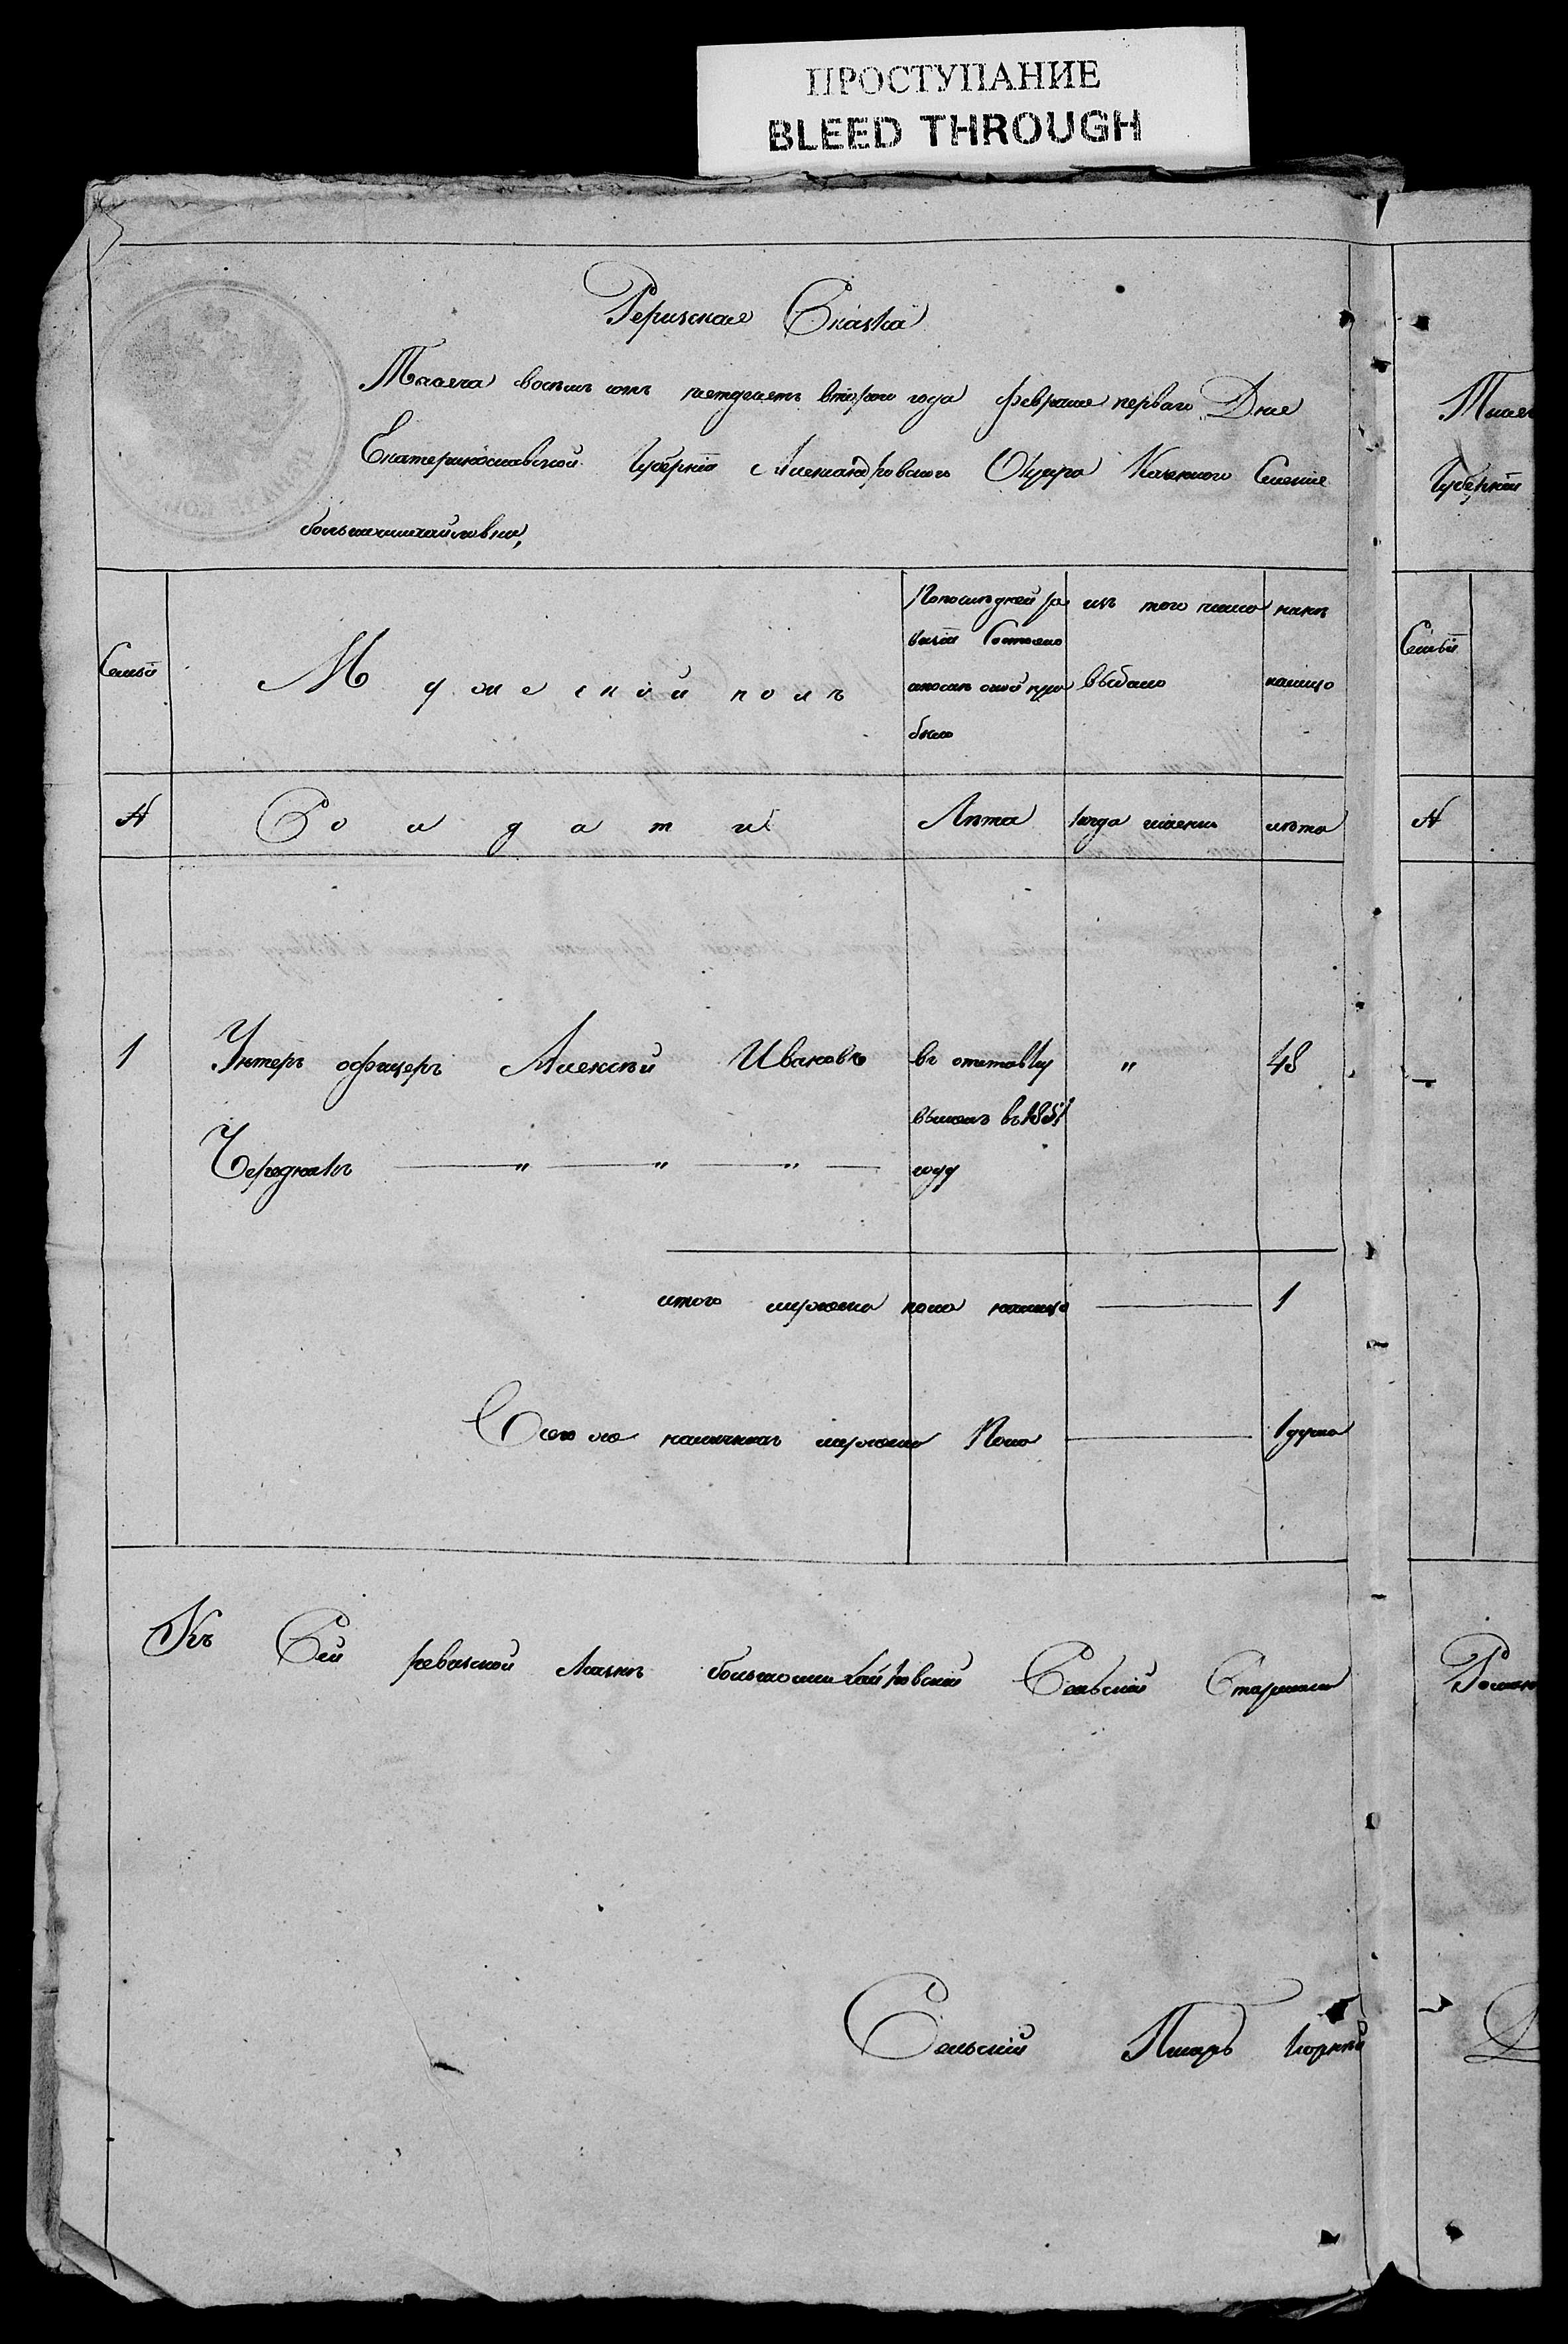 ПРОСТУПАНИЕ
BLEED THROUGH
Ревизская Сказка
Тысяча восемь сотъ петдесятъ второго года февраля перваго Дня
Екатеринославской Губерніи Александровского Округа Казенного Селенія
большемихайловки,
Семьи
Мужеской полъ
Попоследней ре
визіи Состояло
ипослѣ оной при
было
изъ того числа
выбыло
нынѣ
налицо
№
Солдаты
Лѣта
когда имянно
лѣта
1
Унтеръ офицеръ Алексѣй Ивановъ
Чередникъ — " — " — " —
въ отставку
вышелъ въ 1851
году
"
48
итого мужеска пола налицо — 1
Всего же наличныхъ мужеска Пола — 1 душа
Къ Сей ревизской Сказкѣ большемихайловский Сельский Старшина
Сельский Писарь
Тысяч
Губернии
Семьи
№